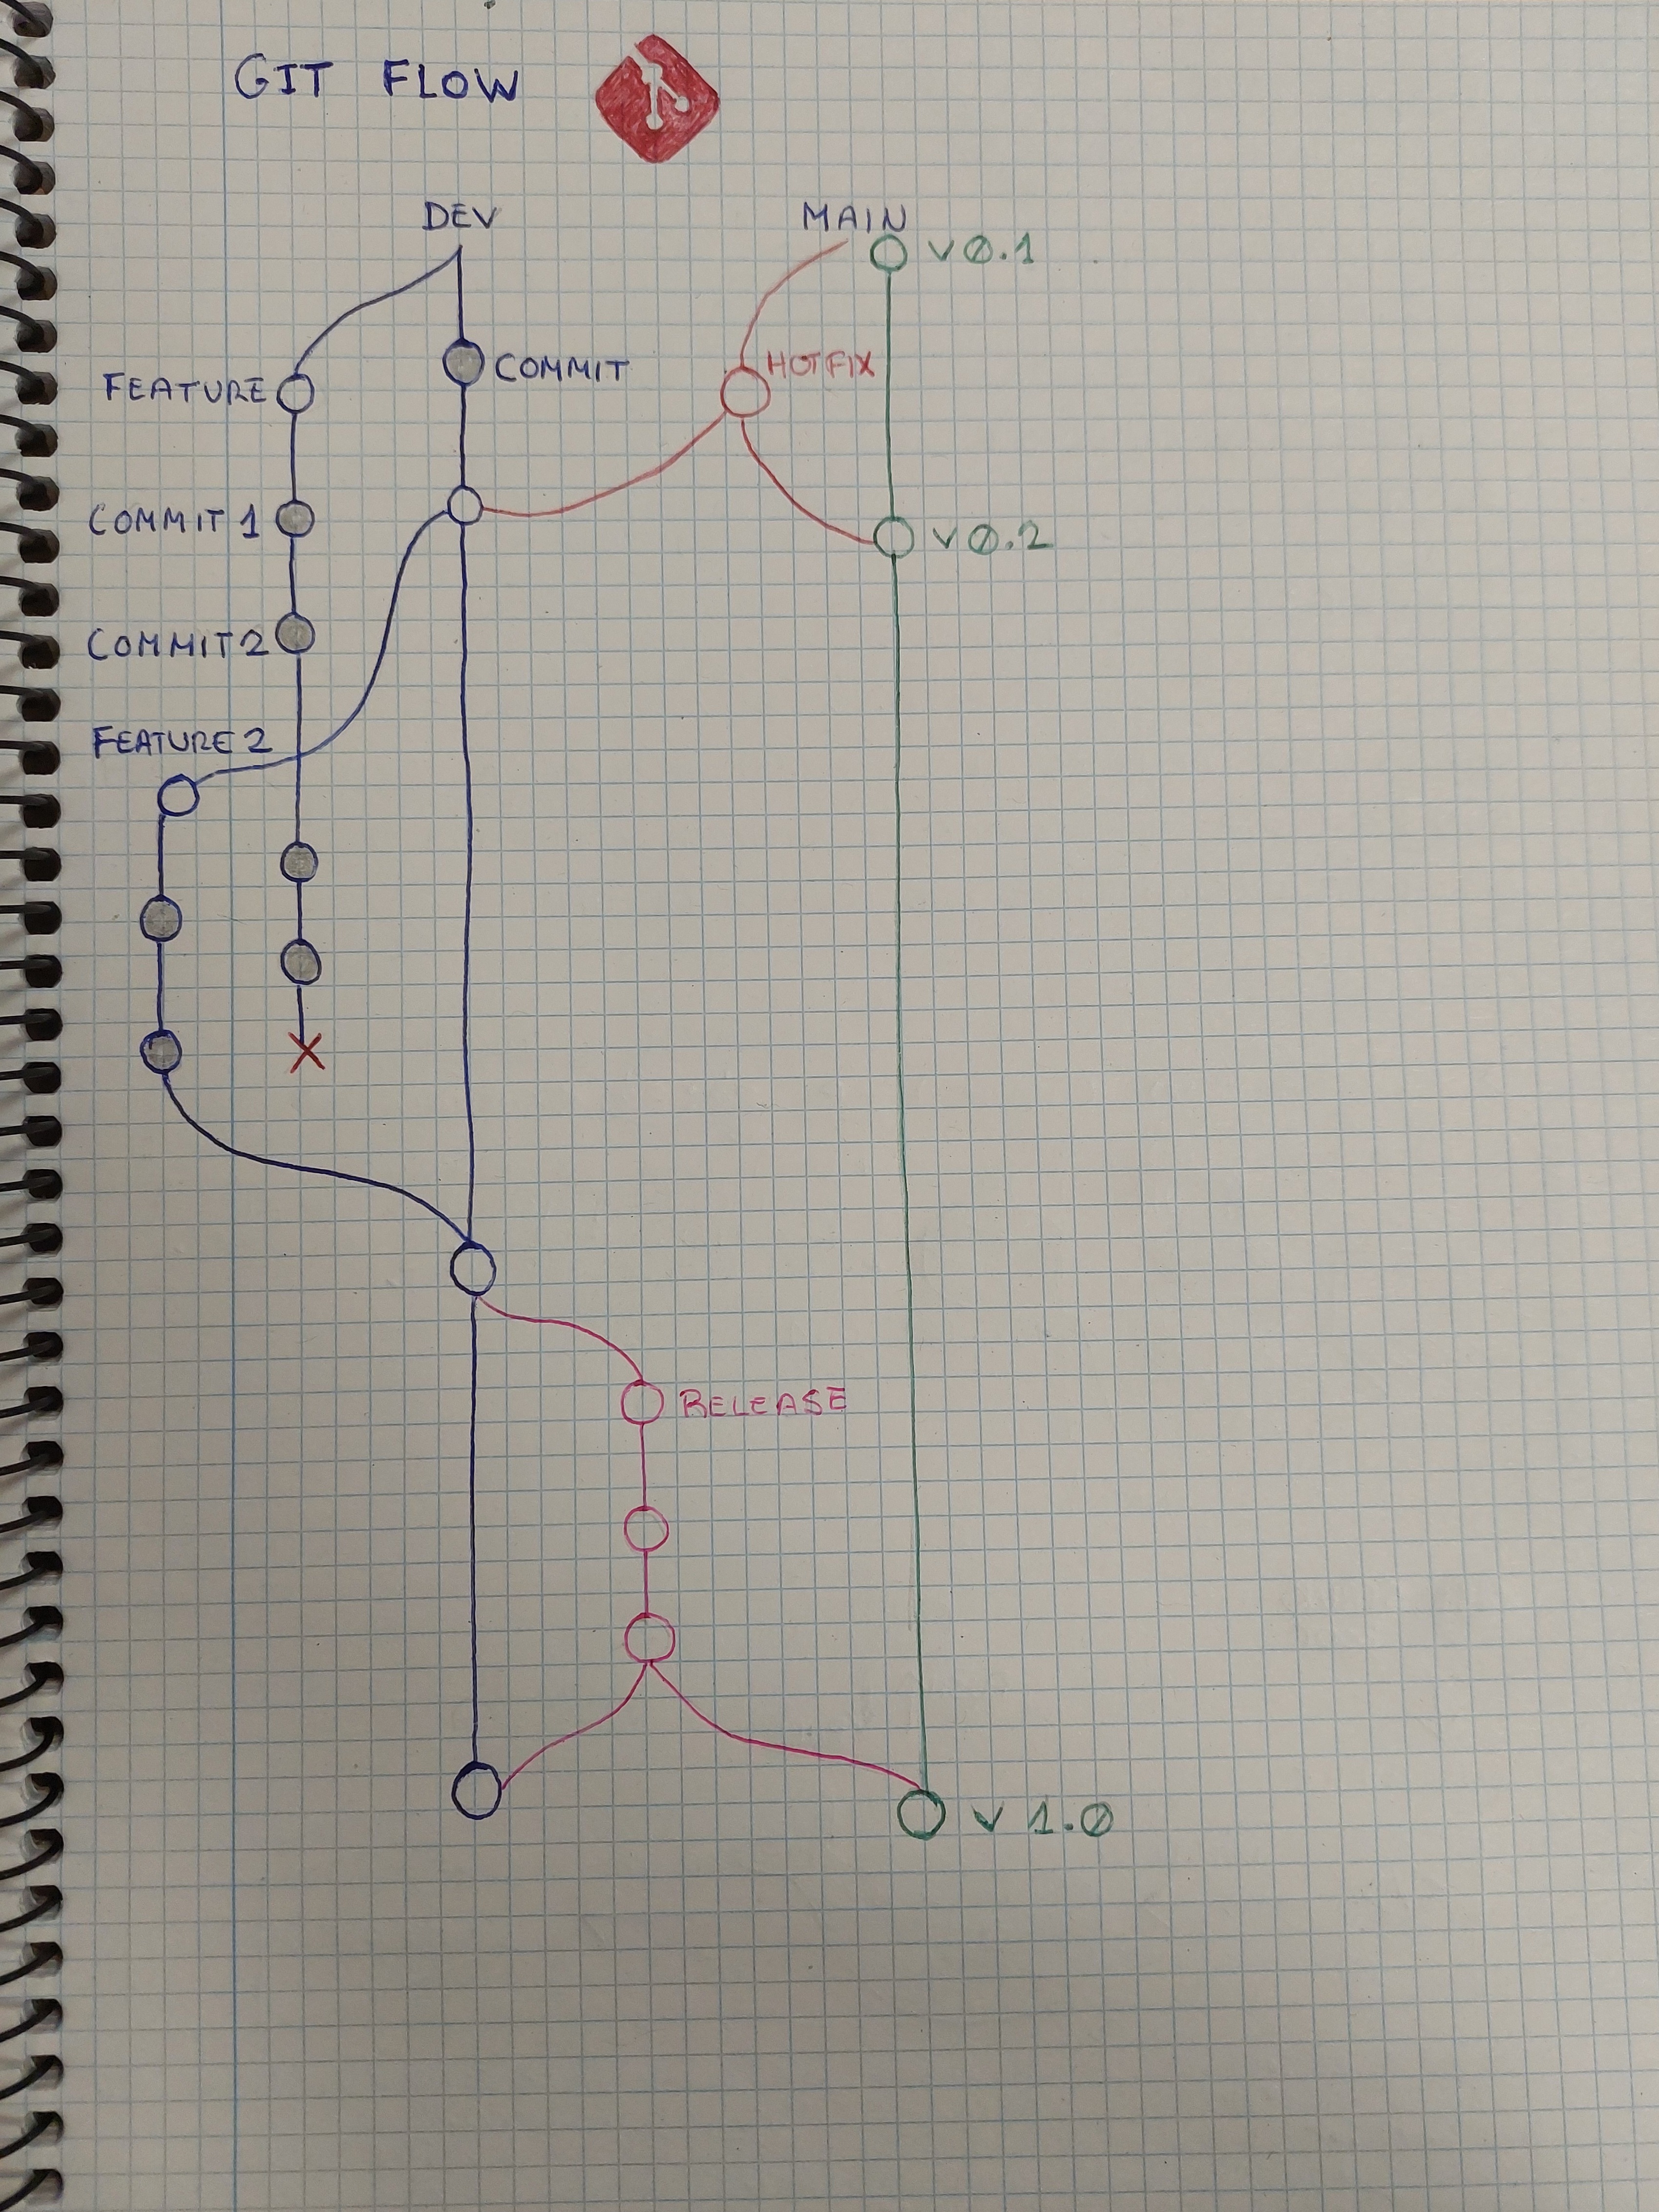 GIT FLOW
DEV
MAIN
v0.1
COMMIT
HOTFIX
FEATURE
COMMIT 1
v0.2
COMMIT 2
FEATURE 2
RELEASE
v 1.0